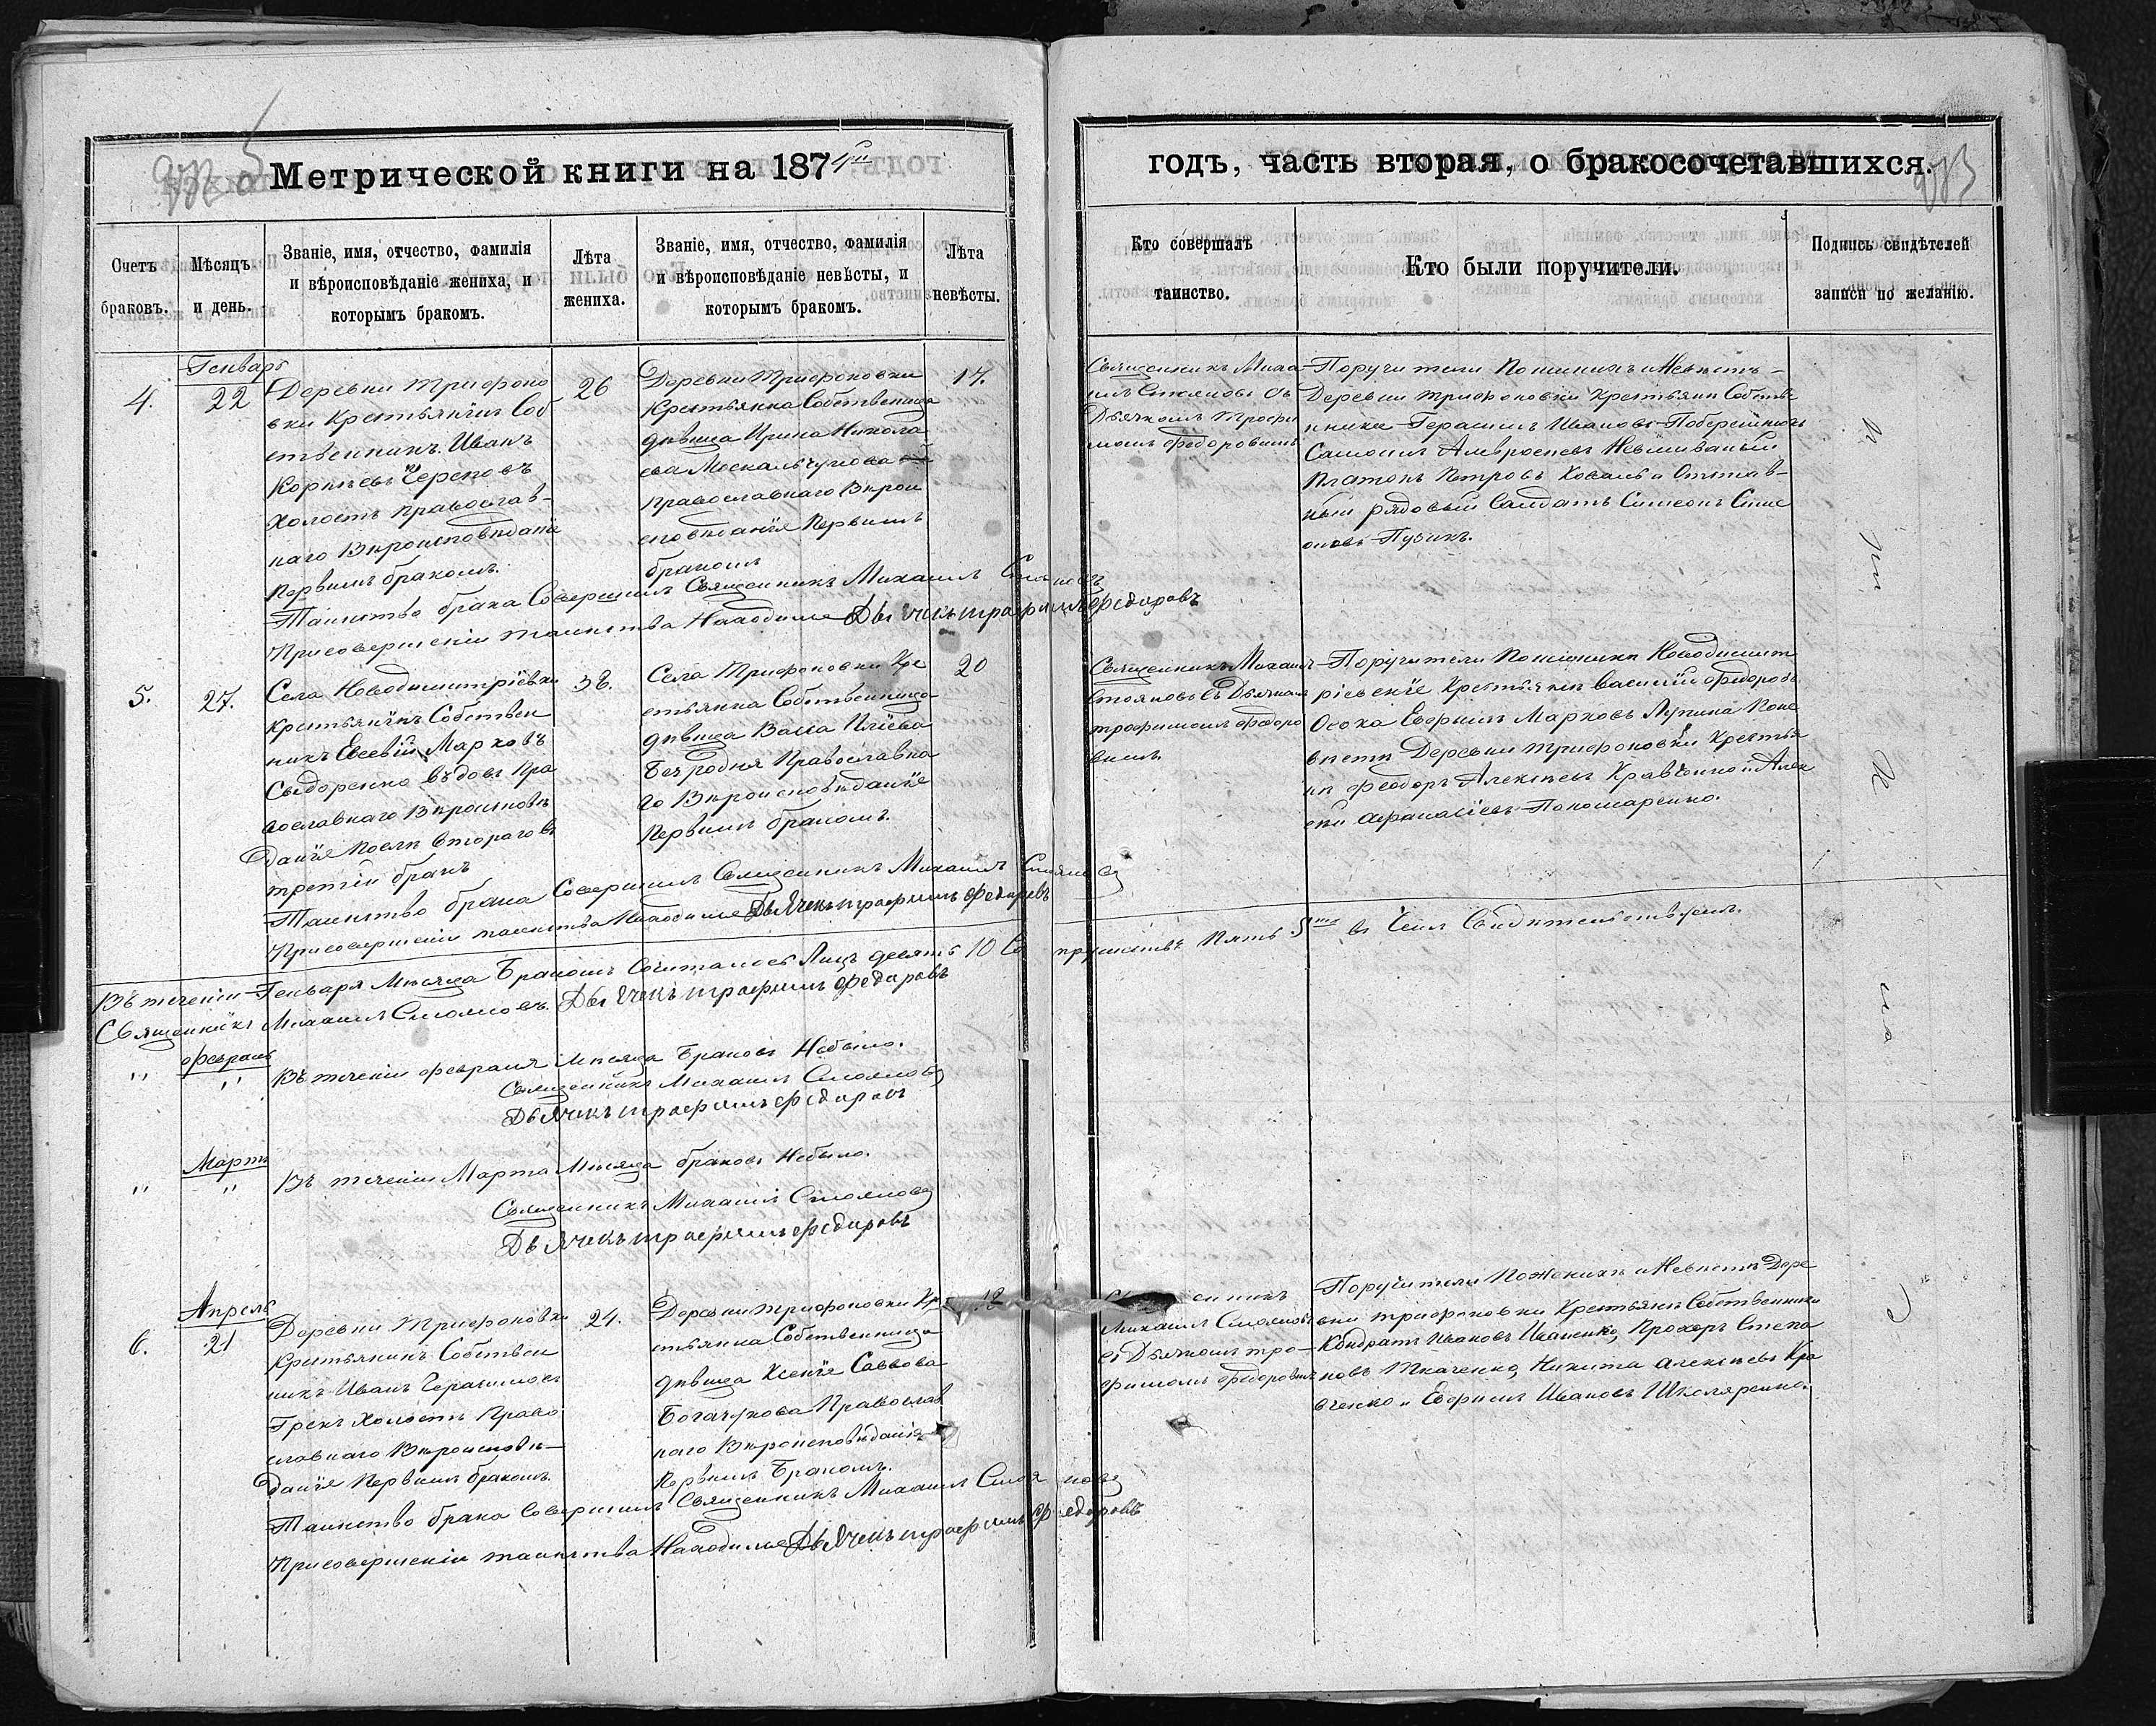 Метрической книги на 1874
годъ, часть вторая, о бракосочетавшихся.
Счетъ
браковъ.
Мѣсяцъ
и день.
Званіе, имя, отчество, фамилія
и вѣроисповѣданіе жениха, и
которымъ бракомъ.
Лѣта
жениха.
Званіе, имя, отчество, фамилія
и вѣроисповѣданіе невѣсты, и
которымъ бракомъ.
Лѣта
невѣсты.
Кто совершалъ
таинство.
Кто были поручители.
Подпись свидѣтелей
записи по желанію.
Генварь
4.
22
Деревни Трифоно
вки Крестьянинъ Соб
ственникъ Иванъ
Корнѣевъ
холостъ православ-
наго Вѣроисповѣданія
первымъ бракомъ.
26
Деревни Трифоновки
Крестьянка Собственница
дѣвица Ирина Никола
ева Москальчукова
православнаго Вѣрои
сповѣданія первымъ
бракомъ
17.
Священникъ Миха
илъ Стояновъ съ
Дьячкомъ Трофи
момъ Федоровымъ
Поручители По женихѣ и Невѣстѣ -
Деревни Трифоновки Крестьяни Собстве
нники Герасимъ Ивановъ
Самоилъ Амвросіевъ
Платонъ Петровъ Коваль и Отстав-
ный рядовый Солдатъ Симеонъ Симе
оновъ Пузикъ.
Таинство брака Совершилъ Священникъ Михаилъ Стояновъ
При совершеніи таинства Находился Дьячекъ трофимъ федоровъ
5.
27.
Села Новодимитріевки
Крестьянинъ Собствен
никъ Евсевій Марковъ
Сыдоренко вдовъ Пра
вославнаго Вѣроисповѣ
данія послѣ втораго въ
третій бракъ
38.
Села Трифоновки Кре
стьянка Собственница
дѣвица Васса Иліева
Безродня Православна
го Вѣроисповѣданія
первымъ бракомъ.
20
Священникъ Михаилъ
Стояновъ съ Дьячкомъ
трофимомъ федоро
вымъ
Поручители По женихѣ Новодимит
ріевскіе Крестьяне Василій Федоровъ
Осока Евфимъ Марковъ Лупина По не
вѣстѣ Деревни Трифоновки Крестья
не Феодоръ Алексѣевъ Кравченко и Алек
сѣй Афанасіевъ Пономаренко.
Таинство брака Совершилъ Священникъ Михаилъ Стояновъ
При совершеніи таинства Находился Дьячекъ трофимъ федоровъ
Въ теченіи Генваря Мѣсяца Бракомъ Сочиталось Лицъ десять 10 Су пружествъ Пять 5 въ Чемъ Свидѣтельствуемъ.
Священникъ Михаилъ Стояновъ. Дьячекъ трофимъ федоровъ
Февраль
" "
Въ теченіи Февраля Мѣсяца Браковъ Небыло.
Священникъ Михаилъ Стояновъ
Дьячекъ трофимъ федоровъ
Мартъ
" "
Въ теченіи Марта Мѣсяца браковъ Небыло.
Священникъ Михаилъ Стояновъ
Дьячекъ трофимъ федоровъ
Апрель
6.
21
Деревни Трифоновки
Крестьянинъ Собствен
никъ Иванъ Герасимовъ
Грекъ Холостъ Право
славнаго Вѣроисповѣ-
данія Первымъ бракомъ.
24.
Деревни Трифоновки Кре
стьянка Собственница
дѣвица Ксенія Саввова
Богачукова Православ
наго Вѣроисповѣданія
Первымъ Бракомъ.
18
Михаилъ Стояновъ
съ Дьячкомъ тро-
фимомъ Федоровымъ
Поручители По женихѣ и Невѣстѣ Дере
вни Трифоновки Крестьяне Собственники
Кондратъ Ивановъ Иваненко, Прохоръ Степа
новъ Ткаченко, Никита Алексѣевъ Кра
вченко и Евфимъ Ивановъ Школяренко.
Таинство брака Совершилъ Священникъ Михаилъ Стояновъ
При совершеніи таинства Находился Дьячекъ трофимъ федоровъ